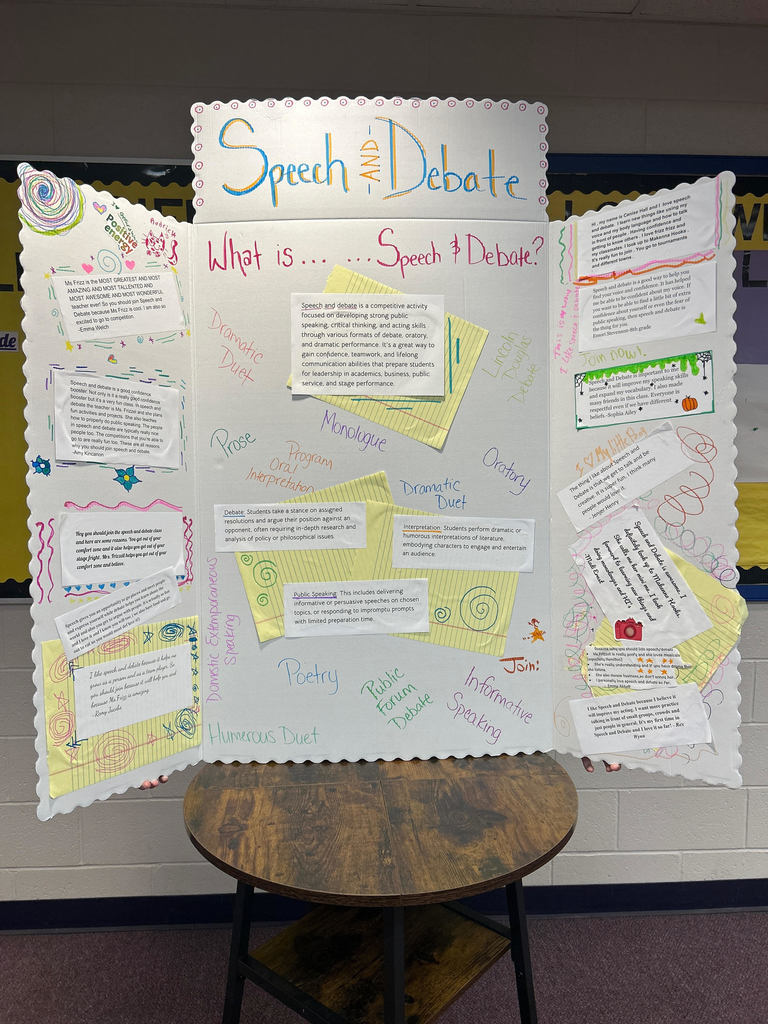 Speech
-AND-
Debate
What is... ...Speech & Debate?
Positive
energy
Ms Frizz is the MOST GREATEST AND MOST
AMAZING AND MOST TALLENTED AND
MOST AWESOME AND MOST WONDERFUL
teacher ever! So you should join Speech and
Debate because Ms.Frizz is cool. I am also so
excited to go to competition.
-Emma Welch
Speech and Debate is a good confidence
booster. Not only it is a really good confidence
booster but it's a very fun class. In speech and
debate the teacher is Ms. Frizzell and she plans
fun activities and projects. She also teaches
how to properly do public speaking. The people
in speech and debate are typically really nice
people too. The competitions that you're able to
go to are really fun too. These are all reasons
why you should join speech and debate.
-Amy Kincanon
Hey you should join the speech and debate class
and here are some reasons. You get out of your
comfort zone and it also helps you get out of your
stage fright. Mrs. Frizzell helps you get out of your
comfort zone and believe.
Speech gives you an opportunity to go places
I like speech and debate because it helps me
grow as a person and as a team player. So
you should join because it will help you and
because Ms.Frizz is amazing.
- Remy Jacobs
Dramatic
Duet
Speech and debate is a competitive activity
focused on developing strong public
speaking, critical thinking, and acting skills
through various formats of debate, oratory,
and dramatic performance. It's a great way to
gain confidence, teamwork, and lifelong
communication abilities that prepare students
for leadership in academics, business, public
service, and stage performance.
Lincoln
Douglas
Debate
Prose
Monologue
Program
Oral
Interpretation
Dramatic
Duet
Oratory
Debate: Students take a stance on assigned
resolutions and argue their position against an
opponent, often requiring in-depth research and
analysis of policy or philosophical issues.
Interpretation: Students perform dramatic or
humorous interpretations of literature,
embodying characters to engage and entertain
an audience.
Public Speaking: This includes delivering
informative or persuasive speeches on chosen
topics, or responding to impromptu prompts
with limited preparation time.
Domestic Extemporaneous
Speaking
Poetry
Public
Forum
Debate
Informative
Speaking
Join!
Humerous Duet
Hi , my name is Cenise Hall and I love speech
and debate . I learn new things like using my
voice and my body language and how to talk
in front of people . Having confidence and
getting to know others . I love friz frizz and
my classmates . I look up to Makenna Hooks .
It's really fun to join . You go to tournaments
and different towns .
Speech and debate is a good way to help you
find your voice and confidence. It has helped
me be able to be confident about my voice. If
you want to be able to find a little bit of extra
confidence about yourself or even the fear of
public speaking, then speech and debate is
the thing for you.
-8th grade
Join now!
Speech and Debate is important to me
because it will improve my speaking skills
and expand my vocabulary. I also made
many friends in this class. Everyone is
respectful even if we have different
beliefs. -Sophia Ailey
I My little Pony
The thing I like about Speech and
Debate is that we get to talk and be
creative. It is super fun. I think many
people would love it.
- Henry
Speech and Debate is awesome. I
definitely look up to Makenna Hooks.
She
forward to learning new things and
doing monologues and POI.
I like Speech and Debate because I believe it
will improve my acting. I want more practice
talking in front of small groups, crowds and
just people in general. It's my first time in
Speech and Debate and I love it so far! - Rex
Wynn